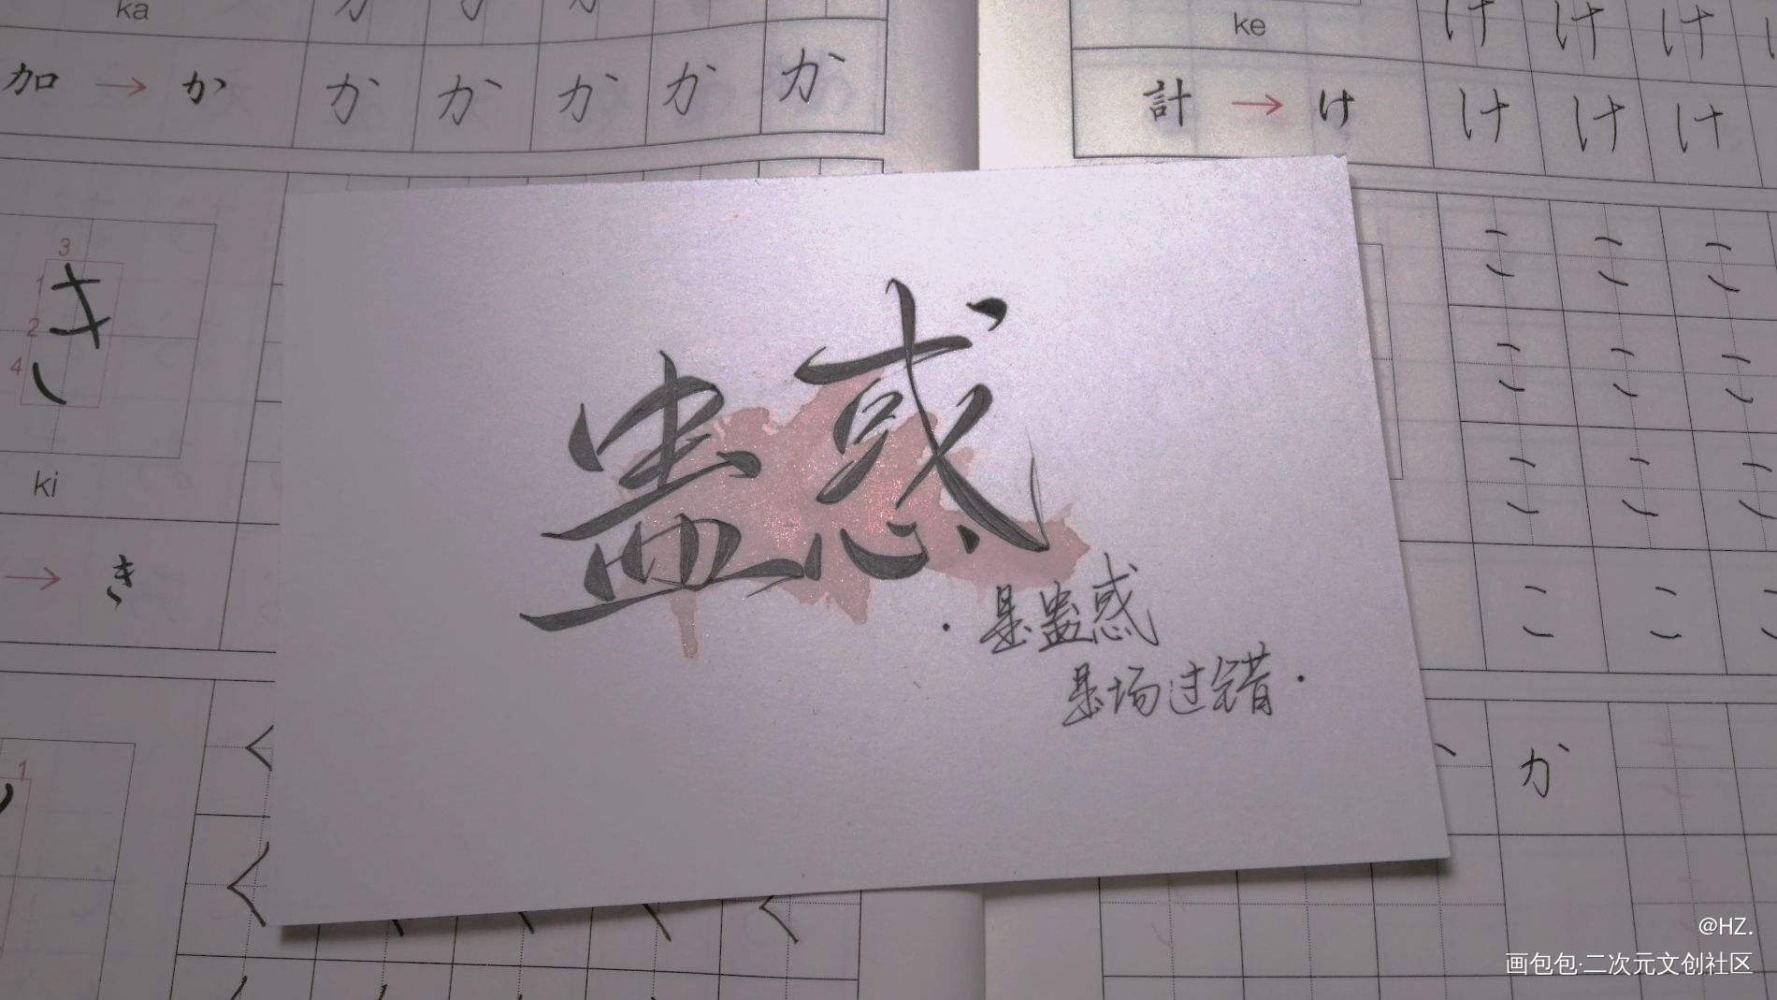 ka
か か か
加 → か か か か か か
3
1
2
4
き
ki
→ き
1
く
く
く
ke
け け け
計 → け け け け
こ こ こ
こ こ こ
こ こ こ
こ こ こ
か
蛊惑
·是蛊惑
是场过错·
@HZ.
画包包·二次元文创社区